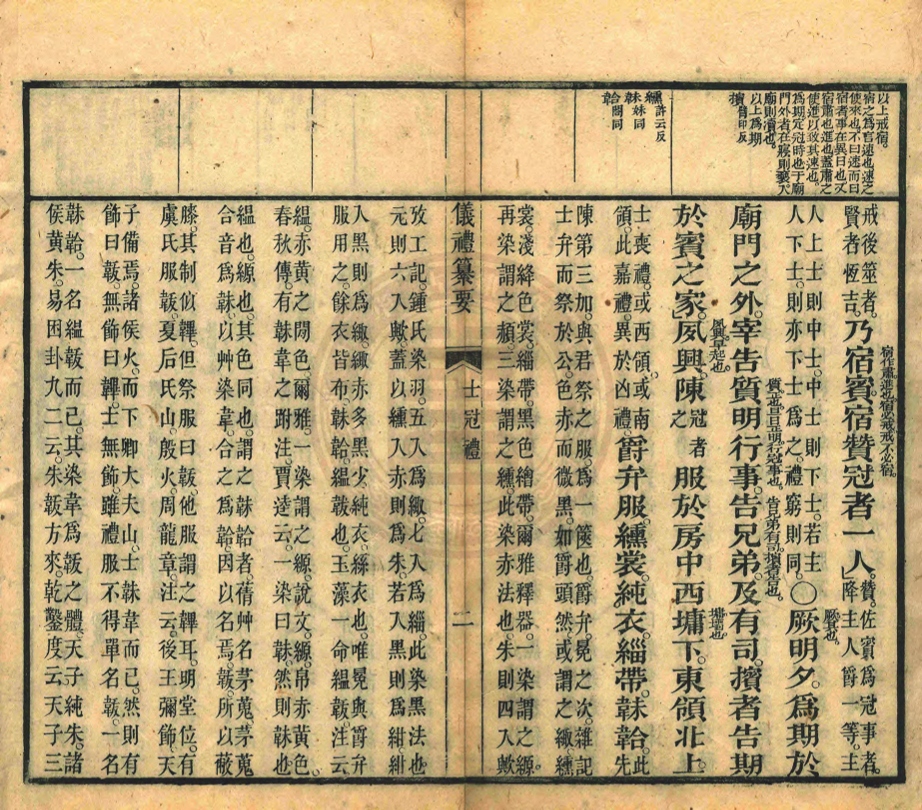 以上戒宿。
宿之為言速也速之
使來也不曰速而曰
宿者事在異日也又
宿肅也進也蓋肅之
使進以致其速也。
為期定冠時也于廟
門外者在寢則娶入
廟則瀆也。
以上為期
擯賓印反
纁許云反
韎妹同
韐閤同
戒後筮者。
賢者恆吉。
乃宿賓。宿贊冠者一人。
宿作肅。進也。宿必戒。戒不必宿。
贊。佐賓為冠事者。
降主人爵一等。主
人上士則中士。中士則下士。若主
人下士。則亦下士為之。禮窮則同。
○厥明夕。為期於
厥。其也。
廟門之外。宰告質明行事。告兄弟及有司。擯者告期
質。正也。旦正明。行冠事也。
告兄弟有司。擯者也。
於賓之家。夙興。陳
夙興。早起也。
冠者
之
服於房中西墉下。東領北上
墉。牆也。
士喪禮。或西領。或南
領。此嘉禮。異於凶禮。
爵弁服。纁裳。純衣。緇帶。韎韐。
此
先
陳第三加。與君祭之服。為一篋也。爵弁。冕之次。雜記
士弁而祭於公。色赤而微黑。如爵頭然。或謂之緅。纁
裳。淺絳色裳。緇帶。黑色繒帶。爾雅釋器。一染謂之縓
再染謂之赬。三染謂之纁。此染赤法也。朱則四入歟
儀禮纂要
士冠禮
二
攷工記。鍾氏染羽。五入為緅。七入為緇。此染黑法也
元則六入歟。蓋以纁入赤則為朱。若入黑則為紺。紺
入黑則為緅。緅赤多黑少。純衣。絲衣也。唯冕與爵弁
服用之。餘衣皆布。韎韐。縕韍也。玉藻。一命縕韍。注云
縕。赤黃之閒色。爾雅。一染謂之縓。說文。縓。帛赤黃色。
春秋傳。有韎韋之跗注。賈逵云。一染曰韎。然則韎也
縕也。縓也。其色同也。謂之韎韐者。蒨艸名茅蒐。茅蒐
合音為韎。以艸染韋。合之為韐。因以名焉。韍所以蔽
膝。其制似韠。但祭服曰韍。他服謂之韠耳。明堂位。有
虞氏服韍。夏后氏山。殷火。周龍章。注云。後王彌飾。天
子備焉。諸侯火而下。卿大夫山。士韎韋而已。然則有
飾曰韍。無飾曰韠。士無飾。雖禮服不得單名韍。一名
韎韐。一名縕韍而已。其染韋為韍之體。天子純朱。諸
侯黃朱。易困卦九二云。朱韍方來。乾鑿度云。天子三